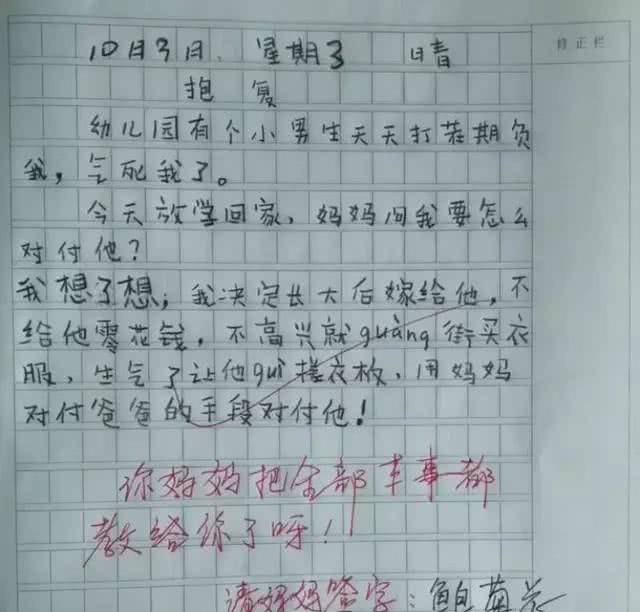 10月3日 星期3 晴
修正栏
抱复
幼儿园有个小男生天天打茬期负
我，气死我了。
今天放学回家，妈妈问我要怎么
对付他？
我想了想，我决定长大后嫁给他，不
给他零花钱，不高兴就guàng街买衣
服，生气了让他guì搓衣板，用妈妈
对付爸爸的手段对付他！
你妈妈把全部本事都
教给你了呀！
请妈妈签字：鲍菊